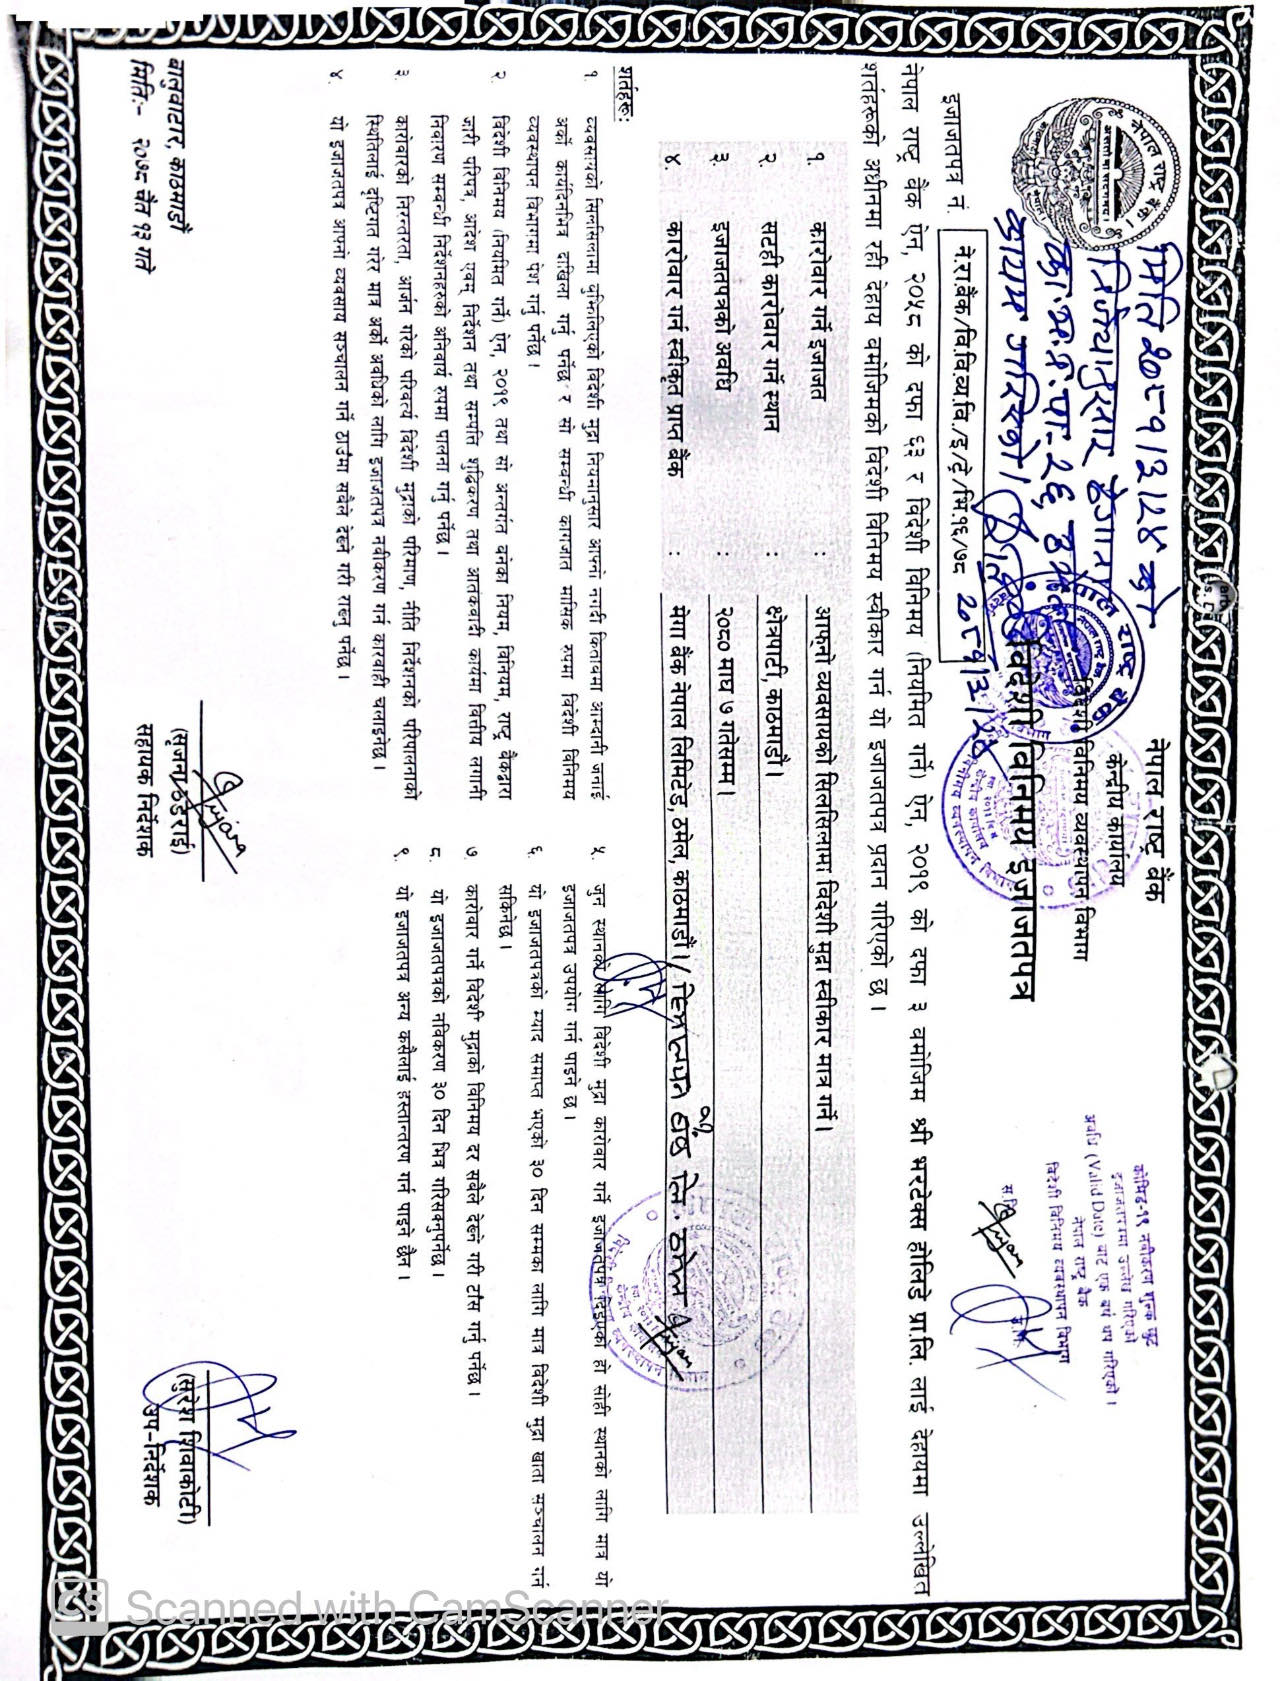 नेपाल राष्ट्र बैंक
केन्द्रीय कार्यालय
विदेशी विनिमय व्यवस्थापन विभाग
विदेशी विनिमय इजाजतपत्र
मिति २०८१।३।२४ को
निर्णयानुसार
कायम गरिएको।
कोभिड-१९ नवीकरण शुल्क छुट
इजाजतपत्रमा उल्लेख गरिएको
अवधि (Valid Date) बाट एक वर्ष थप गरिएको।
नेपाल राष्ट्र बैंक
विदेशी विनिमय व्यवस्थापन विभाग
इजाजतपत्र नं. ने.रा.बैंक/वि.वि.व्य.वि./इ/ट्रे/भि.१६/७८
नेपाल राष्ट्र बैंक ऐन, २०५८ को दफा ६६ र विदेशी विनिमय (नियमित गर्ने) ऐन, २०१९ को दफा ३ बमोजिम श्री भरटेक्स होलिडे प्रा.लि. लाई देहायमा उल्लेखित
शर्तहरुको अधीनमा रही देहाय बमोजिमको विदेशी विनिमय स्वीकार गर्न यो इजाजतपत्र प्रदान गरिएको छ।
१. कारोवार गर्ने इजाजत : आफ्नो व्यवसायको सिलसिलामा विदेशी मुद्रा स्वीकार मात्र गर्ने।
२. सटही कारोवार गर्ने स्थान : क्षेत्रपाटी, काठमाडौं।
३. इजाजतपत्रको अवधि : २०८० माघ ७ गतेसम्म।
४. कारोवार गर्न स्वीकृत प्राप्त बैंक : मेगा बैंक नेपाल लिमिटेड, ठमेल, काठमाडौं। / हिमालयन बैंक लि. ठमेल
शर्तहरु:
१. व्यवसायको सिलसिलामा बुझिलिएको विदेशी मुद्रा नियमानुसार आफ्नो नगदी किताबमा आम्दानी जनाई
अर्को कार्यदिनभित्र दाखिला गर्नु पर्नेछ र सो सम्बन्धी कागजात मासिक रुपमा विदेशी विनिमय
व्यवस्थापन विभागमा पेश गर्नु पर्नेछ।
२. विदेशी विनिमय (नियमित गर्ने) ऐन, २०१९ तथा सो अन्तर्गत बनेका नियम, विनियम, राष्ट्र बैंकद्वारा
जारी परिपत्र, आदेश एवम् निर्देशन तथा सम्पत्ति शुद्धिकरण तथा आतंकवादी कार्यमा वित्तीय लगानी
निवारण सम्बन्धी निर्देशनहरुको अनिवार्य रुपमा पालना गर्नु पर्नेछ।
३. कारोवारको निरन्तरता, आर्जन गरेको परिवर्त्य विदेशी मुद्राको परिमाण, नीति निर्देशनको परिपालनाको
स्थितिलाई दृष्टिगत गरेर मात्र अर्को अवधिको लागि इजाजतपत्र नवीकरण गर्न कारवाही चलाइनेछ।
४. यो इजाजतपत्र आफ्नो व्यवसाय सञ्चालन गर्ने ठाउँमा सबैले देख्ने गरी राख्नु पर्नेछ।
५. जुन स्थानको लागि विदेशी मुद्रा कारोवार गर्ने इजाजतपत्र दिइएको हो सोही स्थानको लागि मात्र यो
इजाजतपत्र उपयोग गर्न पाइने छ।
६. यो इजाजतपत्रको म्याद समाप्त भएको ३० दिन सम्मका लागि मात्र विदेशी मुद्रा खाता सञ्चालन गर्न
सकिनेछ।
७. कारोवार गर्ने विदेशी मुद्राको विनिमय दर सबैले देख्ने गरी टाँस गर्नु पर्नेछ।
८. यो इजाजतपत्रको नविकरण ३० दिन भित्र गरिसक्नुपर्नेछ।
९. यो इजाजतपत्र अन्य कसैलाई हस्तान्तरण गर्न पाइने छैन।
(सृजना ठडराई)
सहायक निर्देशक
(सुरेश शिवाकोटी)
उप-निर्देशक
बालुवाटार, काठमाडौं
मिति:- २०७८ चैत १३ गते
CS Scanned with CamScanner